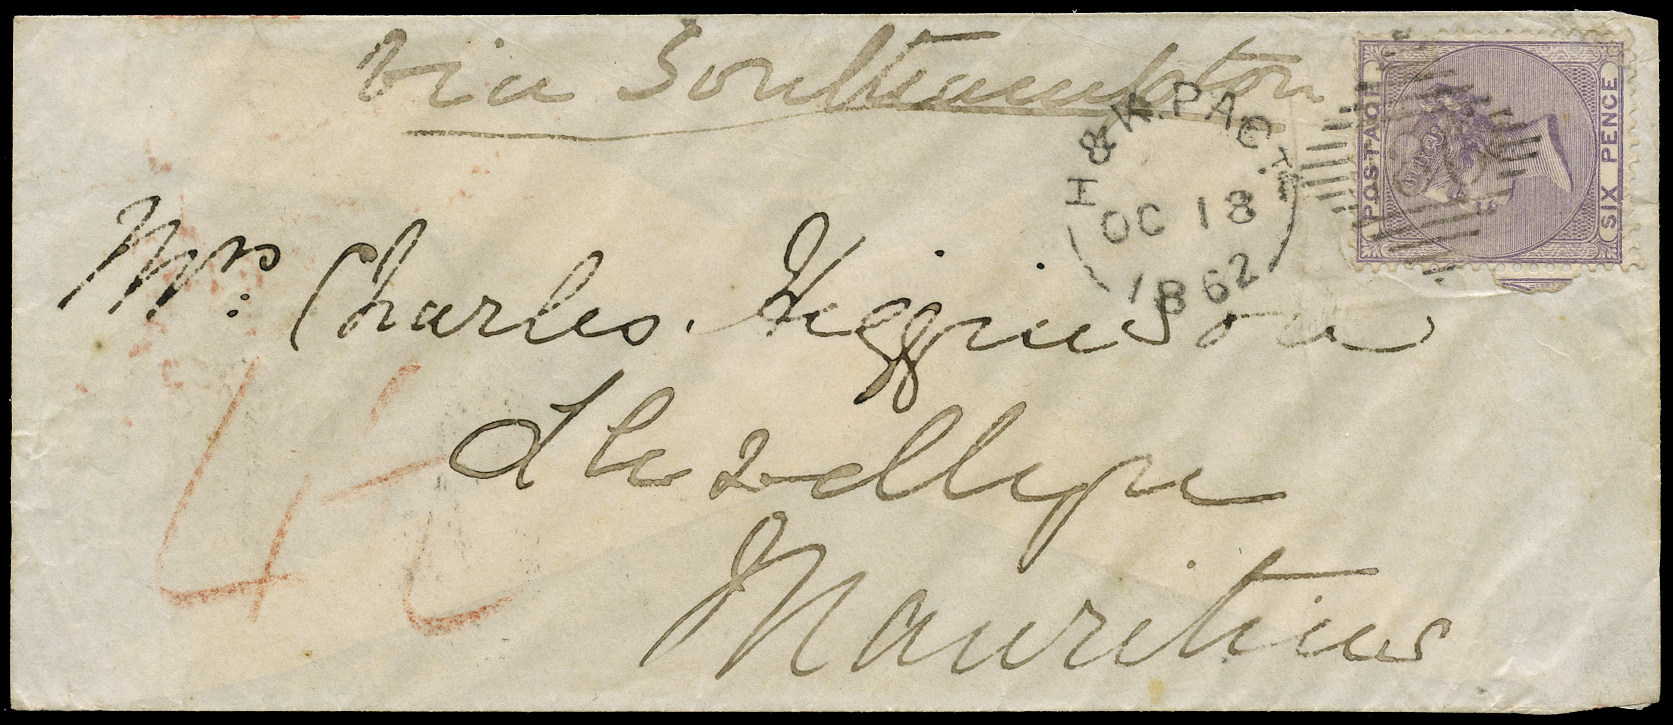 via Southampton
H & K. PACT
OC 18
1862
POSTAGE
SIX PENCE
Mrs. Charles. Higginson
Mauritius